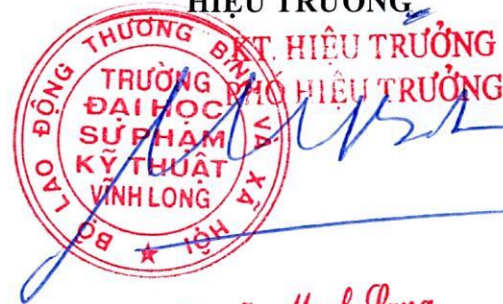 HIỆU TRƯỞNG
KT. HIỆU TRƯỞNG
PHÓ HIỆU TRƯỞNG
BỘ LAO ĐỘNG THƯƠNG BINH VÀ XÃ HỘI
TRƯỜNG
ĐẠI HỌC
SƯ PHẠM
KỸ THUẬT
VĨNH LONG